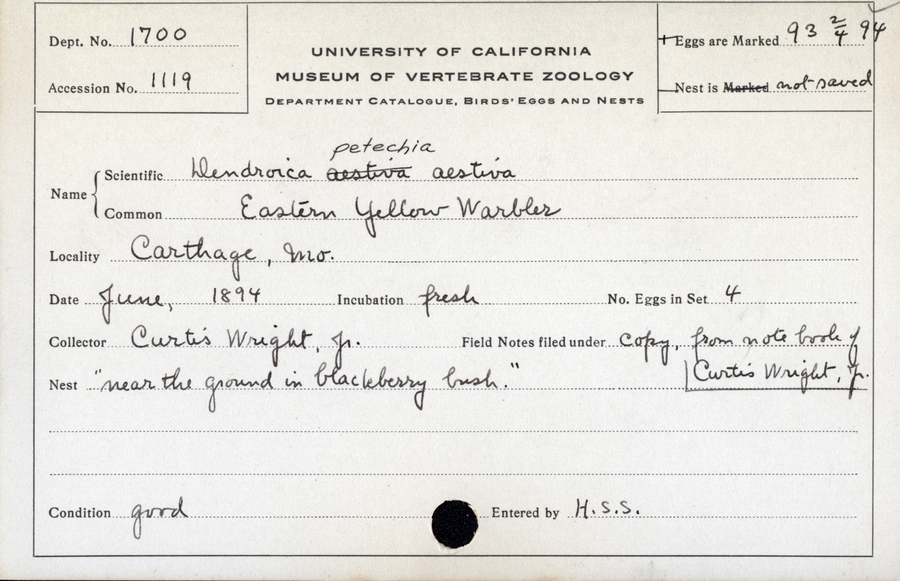 Dept. No. 1700
Accession No. 1119
UNIVERSITY OF CALIFORNIA
MUSEUM OF VERTEBRATE ZOOLOGY
DEPARTMENT CATALOGUE, BIRDS' EGGS AND NESTS
Eggs are Marked 93 2/4 94
Nest is Marked not saved
petechia
Name { Scientific Dendroica aestiva aestiva
Common Eastern Yellow Warbler
Locality Carthage, Mo.
Date June, 1894 Incubation fresh No. Eggs in Set 4
Collector Curtis Wright, Jr. Field Notes filed under copy, from note book of
Curtis Wright, Jr.
Nest "near the ground in blackberry bush."
Condition good Entered by H.S.S.